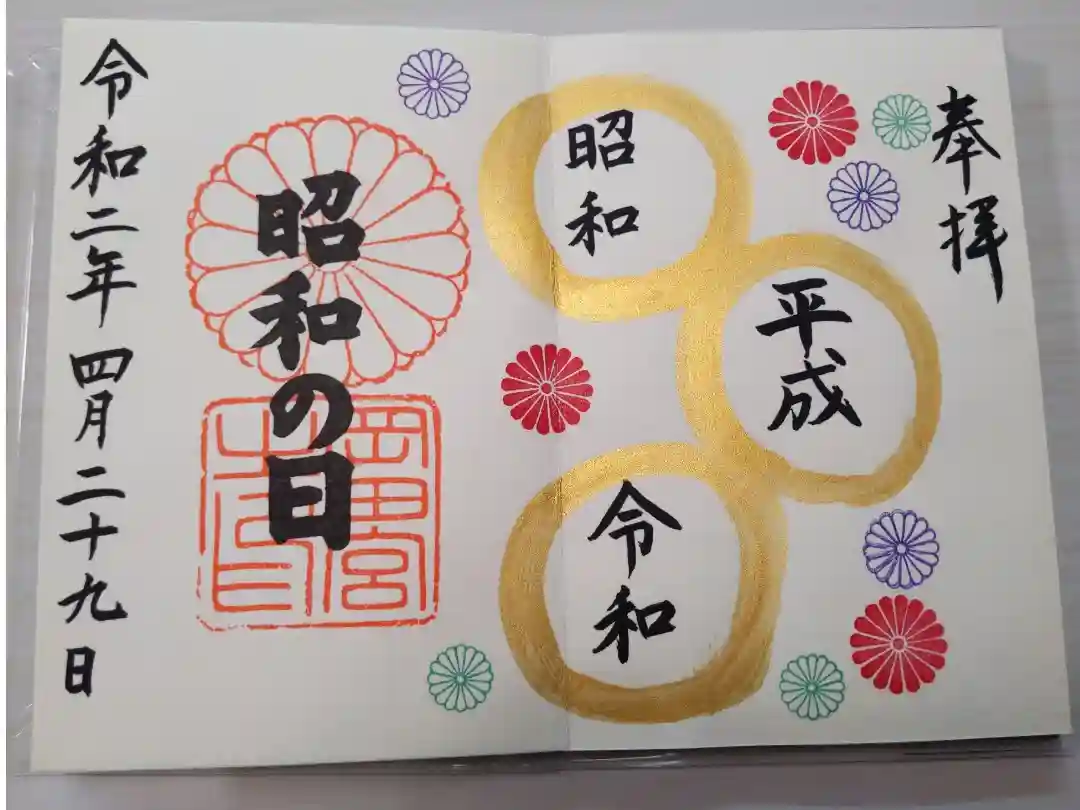 奉拝
昭和
平成
令和
昭和の日
令和二年四月二十九日